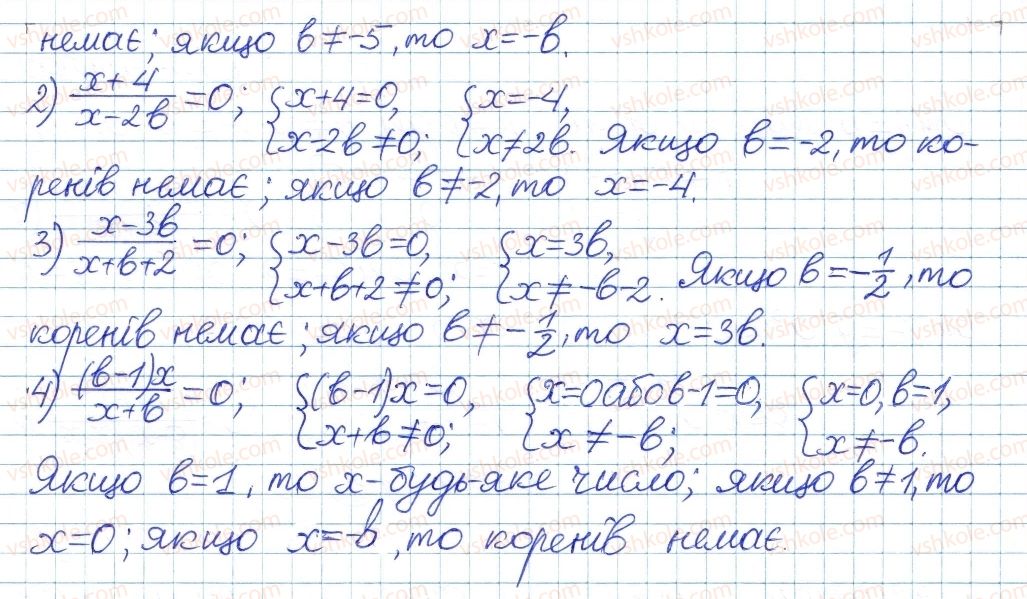 немає; якщо в ≠ -5, то x = -в.
2) (x+4)/(x-2в) = 0; {x+4=0, x-2в ≠ 0; {x=-4, x ≠ 2в. Якщо в = -2, то ко-
ренів немає; якщо в ≠ -2, то x = -4.
3) (x-3в)/(x+в+2) = 0; {x-3в=0, x+в+2 ≠ 0; {x=3в, x ≠ -в-2. Якщо в = -1/2, то
коренів немає; якщо в ≠ -1/2, то x = 3в.
4) ((в-1)x)/(x+в) = 0; {(в-1)x=0, x+в ≠ 0; {x=0 або в-1=0, x ≠ -в; {x=0, в=1, x ≠ -в.
Якщо в=1, то x - будь-яке число; якщо в ≠ 1, то
x=0; якщо x=-в, то коренів немає.